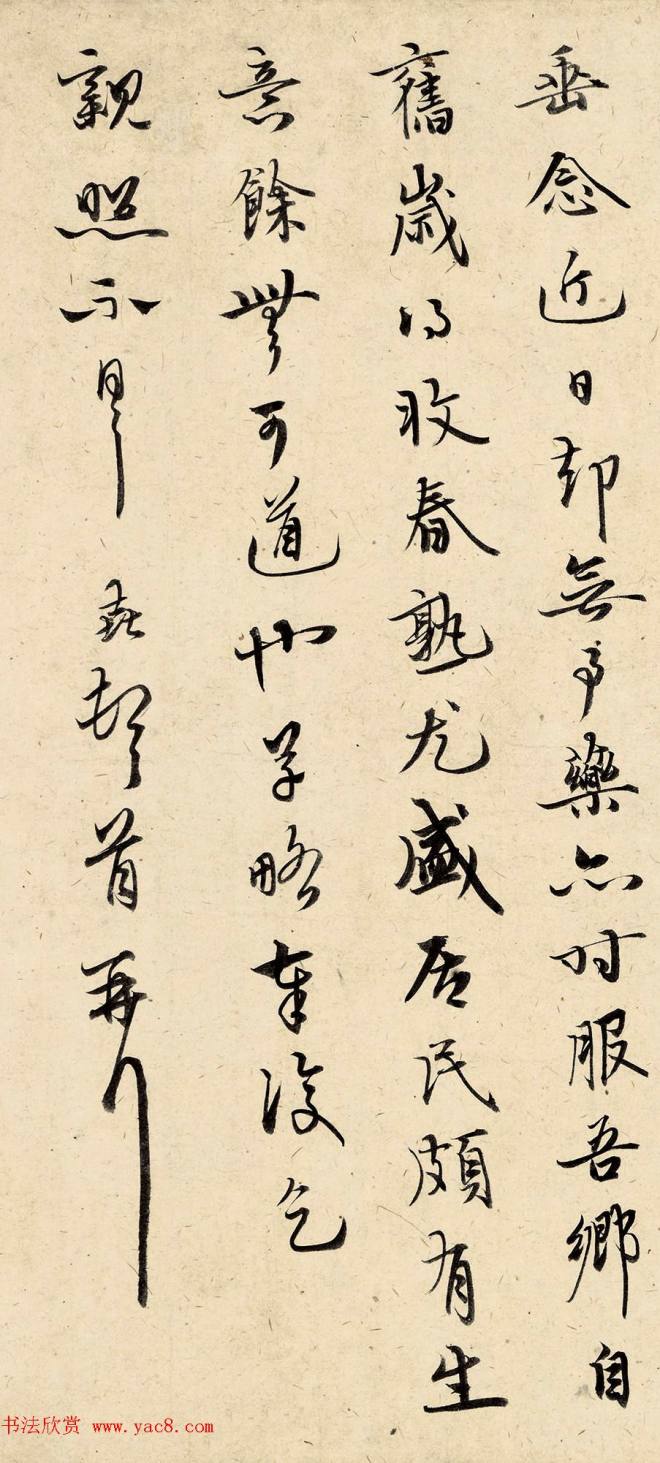 垂念近日却無事藥亦时服吾鄉自
舊歲得收春熟尤盛居民頗有生
意餘無可道也草略奉復乞
親照不具 頓首再拜
书法欣赏 www.yac8.com